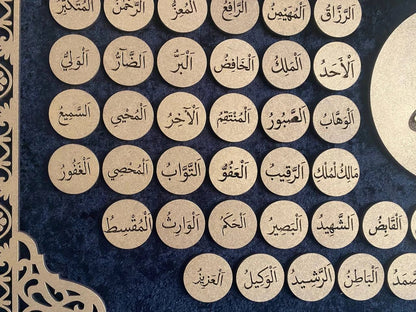 الرَّزَّاقُ الْمُهَيْمِنُ الرَّافِعُ الْمُعِزُّ الرَّحْمٰنُ الْمُتَكَبِّرُ
الْأَحَدُ الْمَلِكُ الْخَافِضُ الْبَرُّ الضَّآرُّ الْوَلِيُّ
الْوَهَّابُ الصَّبُورُ الْمُنْتَقِمُ الْآخِرُ الْمُحْيِي السَّمِيعُ
مَالِكُ الْمُلْكِ الرَّقِيبُ الْعَفُوُّ التَّوَّابُ الْمُحْصِي الْغَفُورُ
الْقَابِضُ الشَّهِيدُ الْبَصِيرُ الْحَكَمُ الْوَارِثُ الْمُقْسِطُ
الْبَاطِنُ الرَّشِيدُ الْوَكِيلُ الْعَزِيزُ